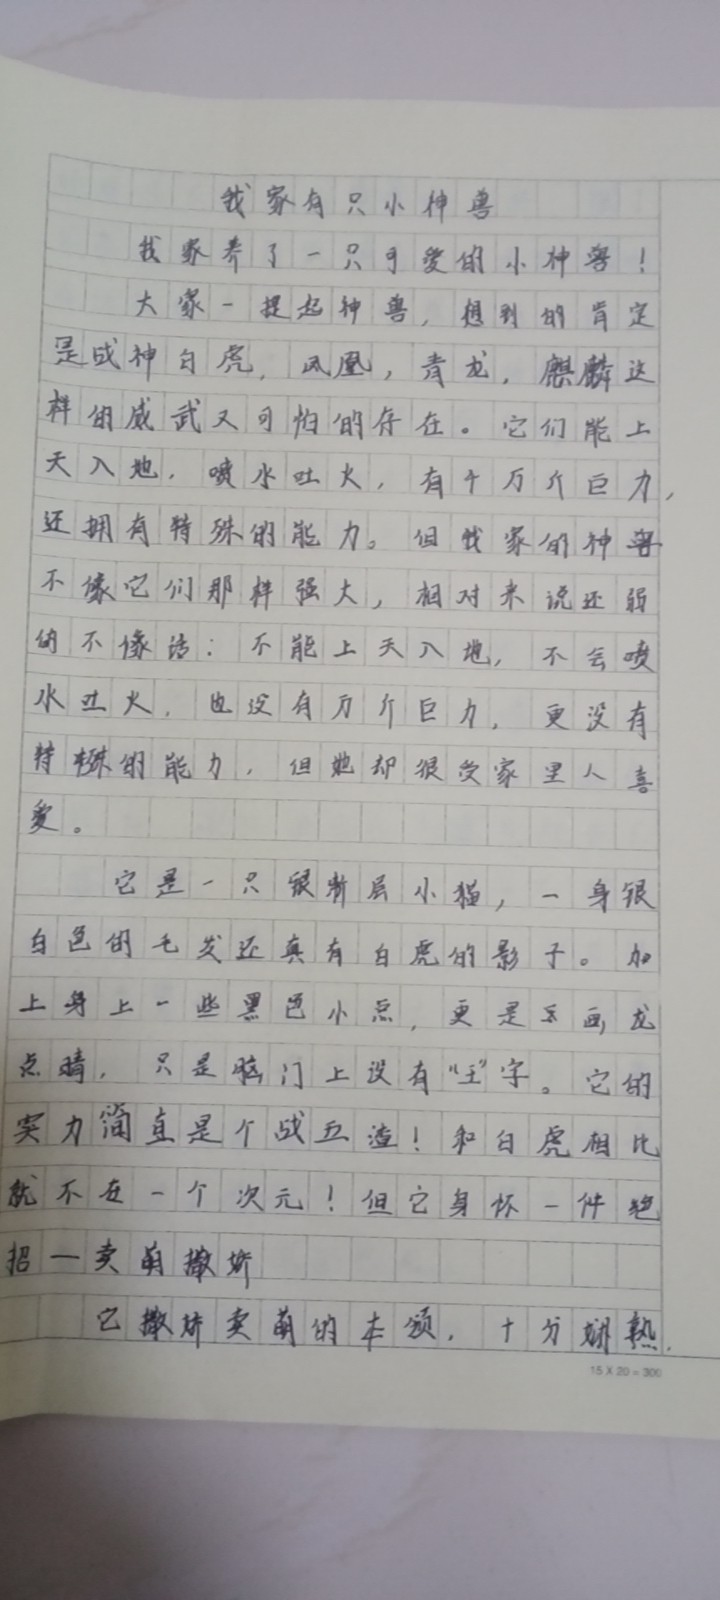 我家有只小神兽
我家养了一只可爱的小神兽！
大家一提起神兽，想到的肯定
是战神白虎，凤凰，青龙，麒麟这
样的威武又可怕的存在。它们能上
天入地，喷水吐火，有千万斤巨力，
还拥有特殊的能力。但我家的神兽
不像它们那样强大，相对来说还弱
的不像话：不能上天入地，不会喷
水吐火，也没有万斤巨力，更没有
特殊的能力，但她却很受家里人喜
爱。
它是一只银渐层小猫，一身银
白色的毛发还真有白虎的影子。加
上身上一些黑色小点，更是画龙
点睛，只是脑门上没有“王”字。它的
实力简直是个战五渣！和白虎相比
就不在一个次元！但它身怀一件绝
招—卖萌撒娇
它撒娇卖萌的本领，十分娴熟，
15 X 20 = 300